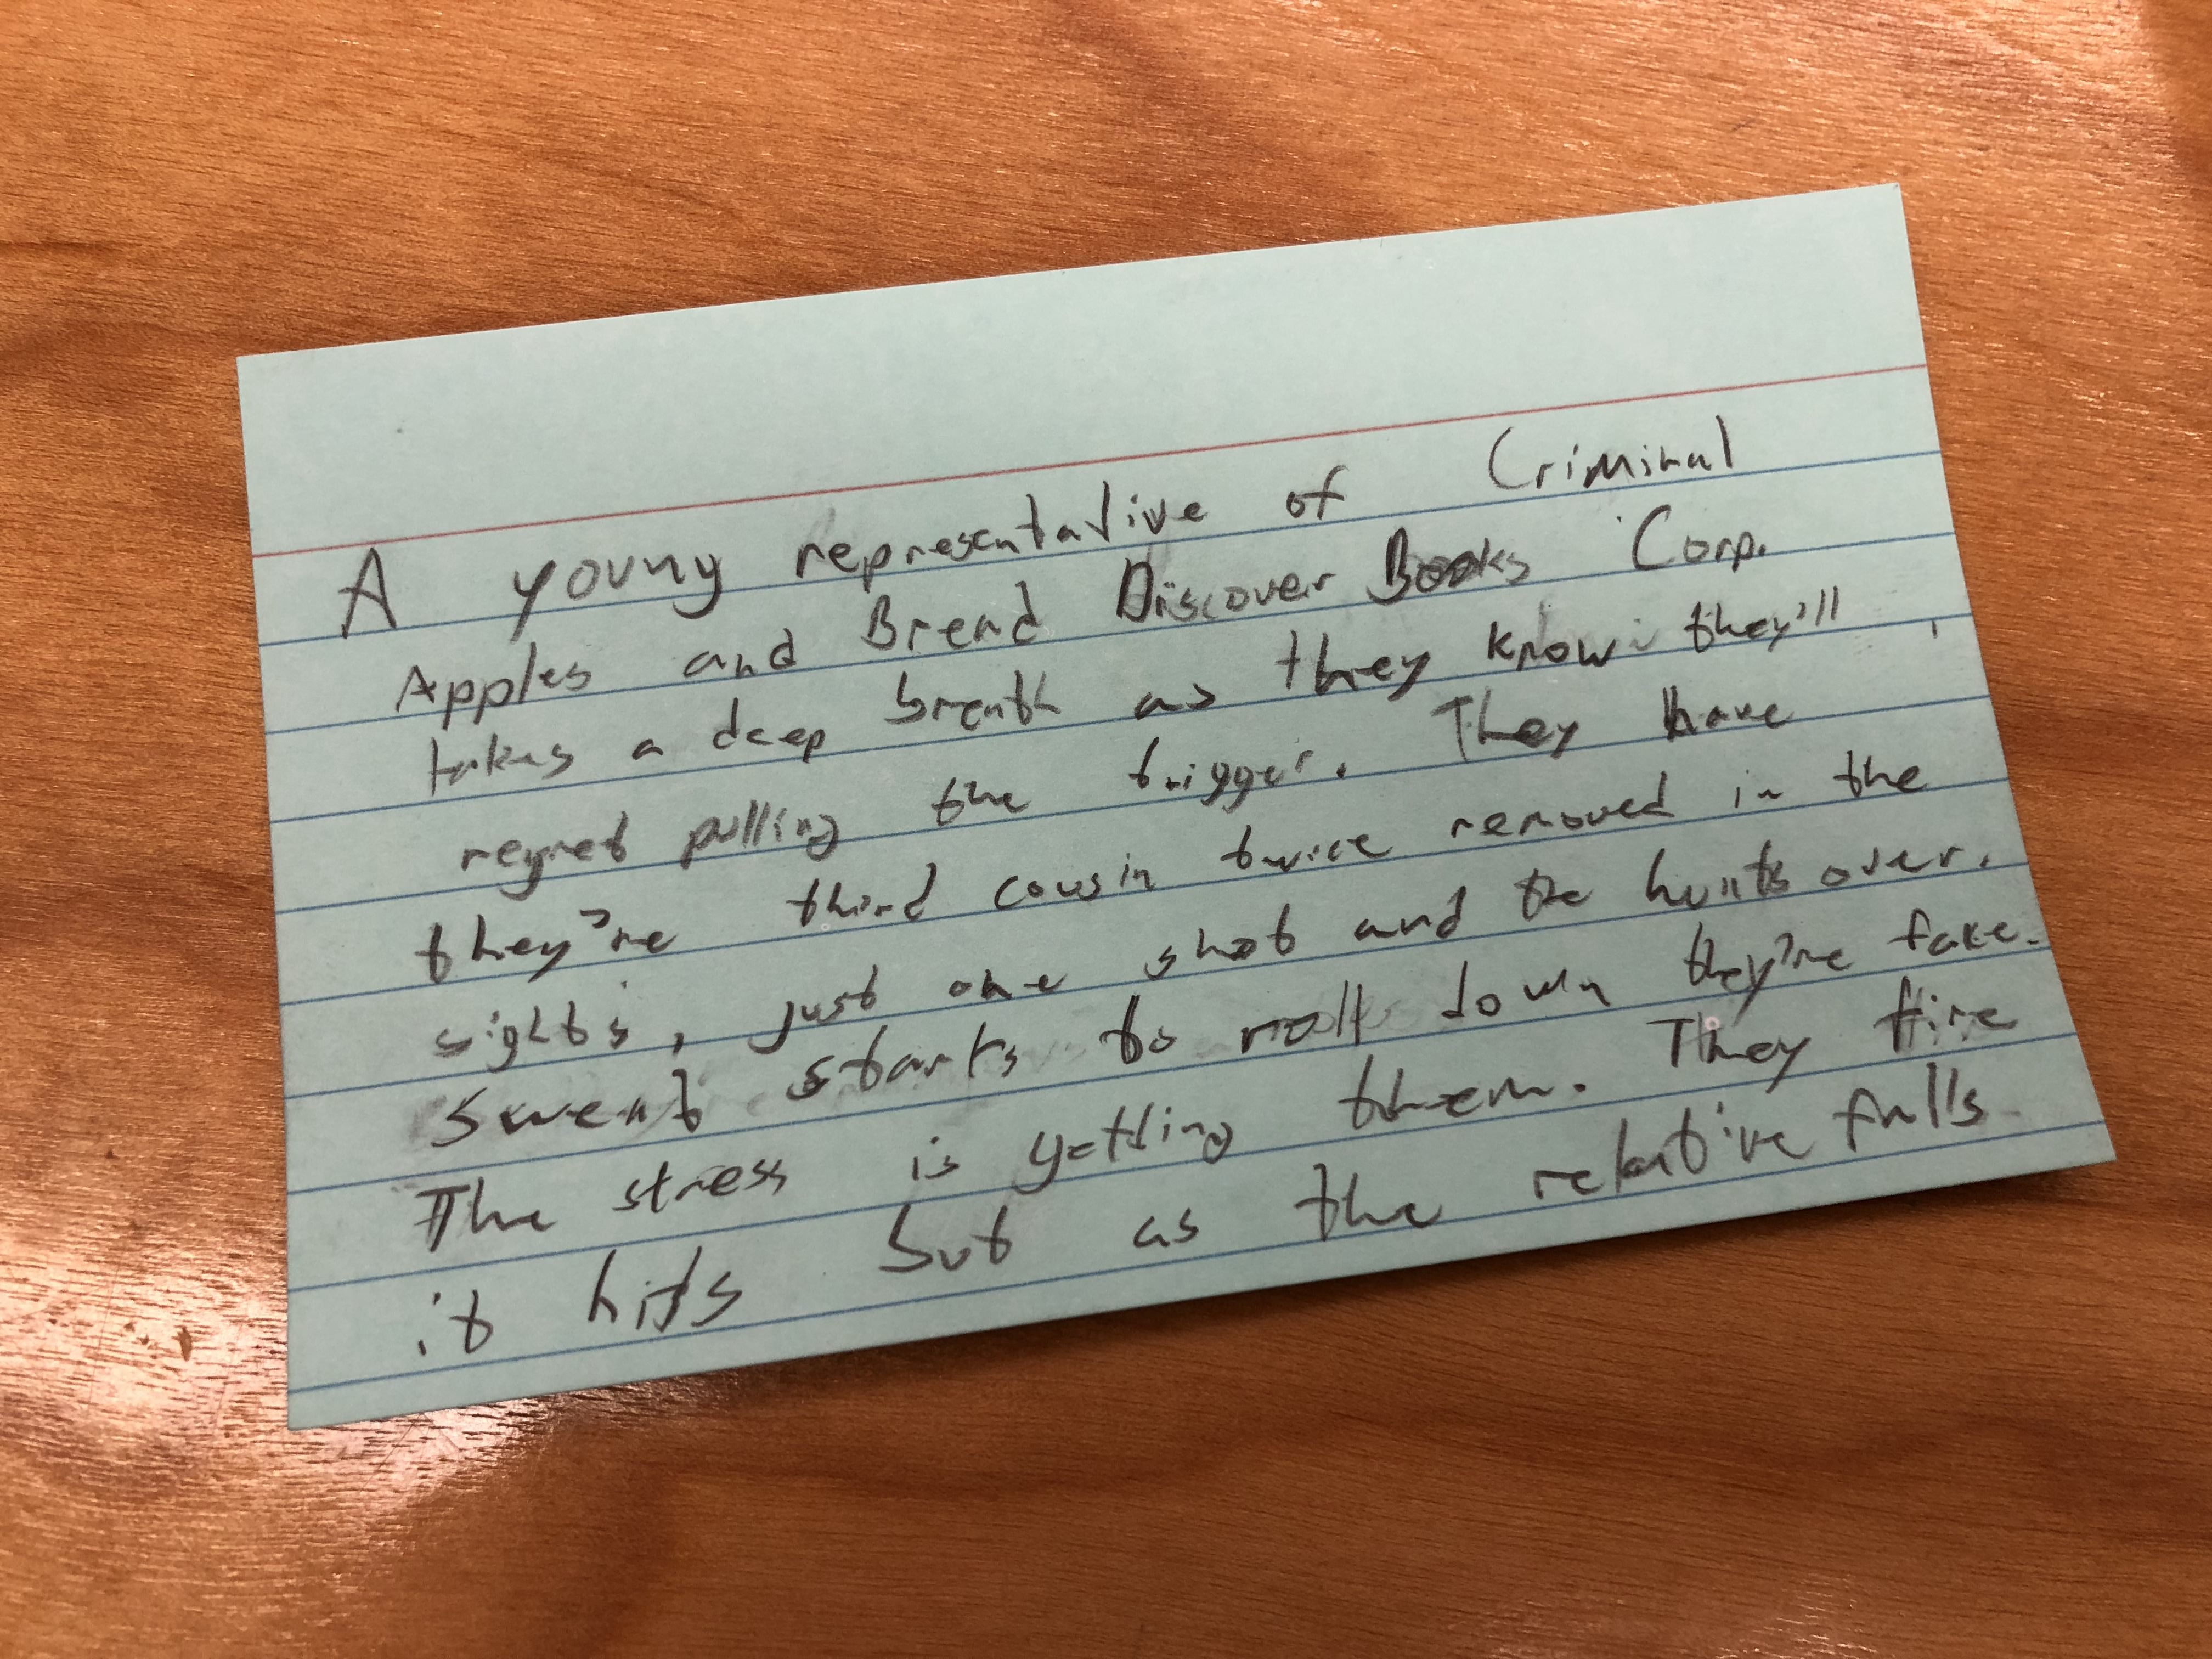 A young representative of Criminal
Apples and Bread Discover Books Corp.
takes a deep breath as they know they'll
regret pulling the trigger. They have
they're third cousin twice removed in the
sights, just one shot and the hunts over.
Sweat starts to roll down they're face.
The stress is getting them. They fire
it hits but as the relative falls